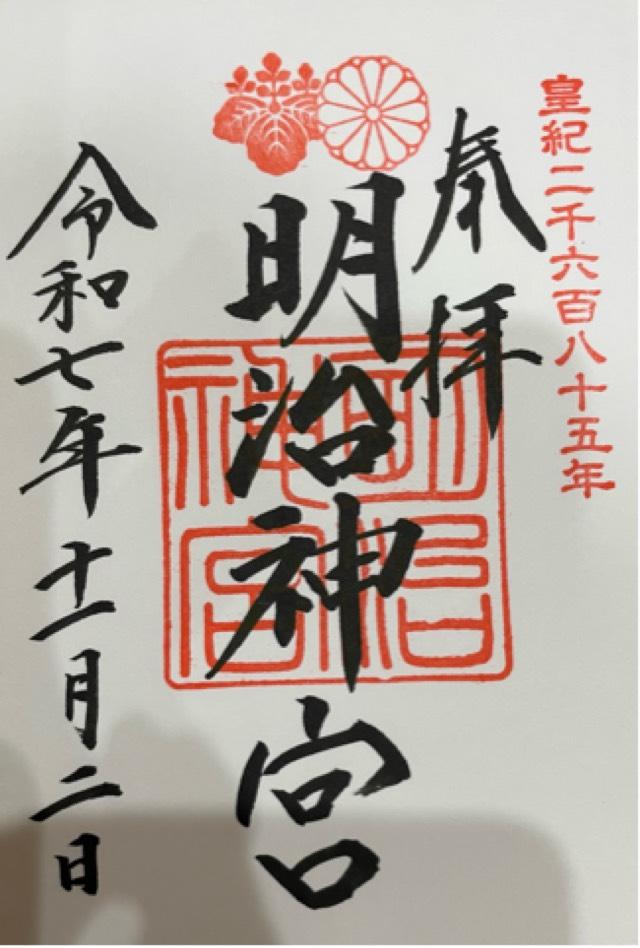 皇紀二千六百八十五年
奉拝
明治神宮
明治神宮
令和七年十一月二日